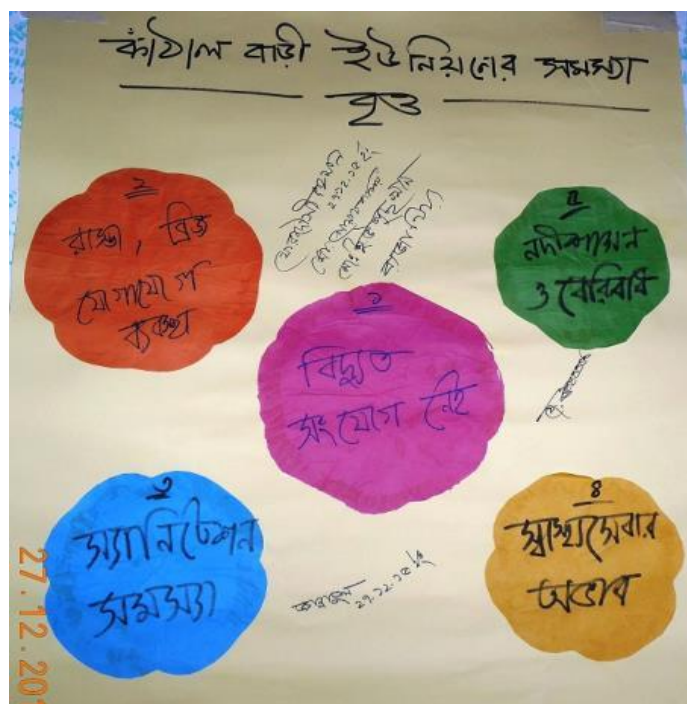 কাঁঠাল বাড়ী ইউনিয়নের সমস্যা
বৃত্ত
২
রাস্তা, ব্রিজ
যোগাযোগ
ব্যবস্থা
৫
নদীশাসন
ও বেরিবাধ
১
বিদ্যুত
সংযোগ নেই
৩
স্যানিটেশন
সমস্যা
৪
স্বাস্থ্যসেবার
অভাব
27.12.20